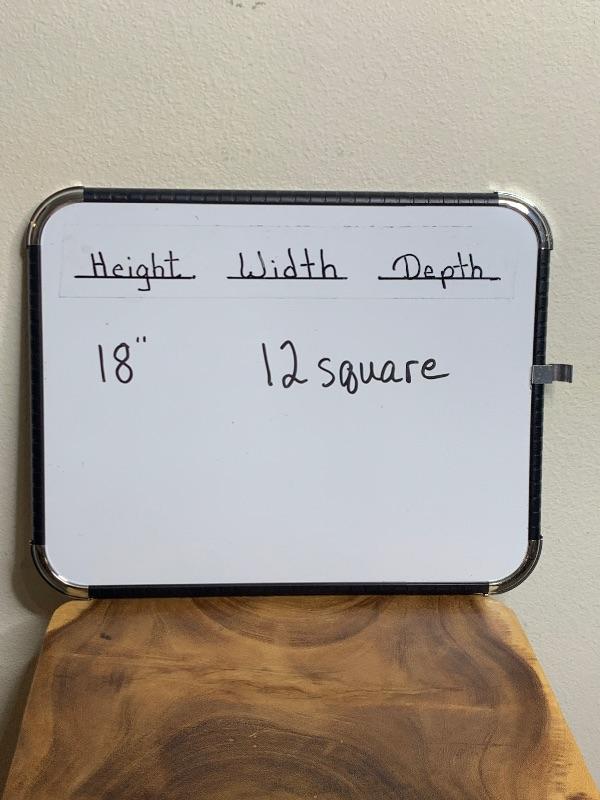 Height Width Depth
18" 12 square